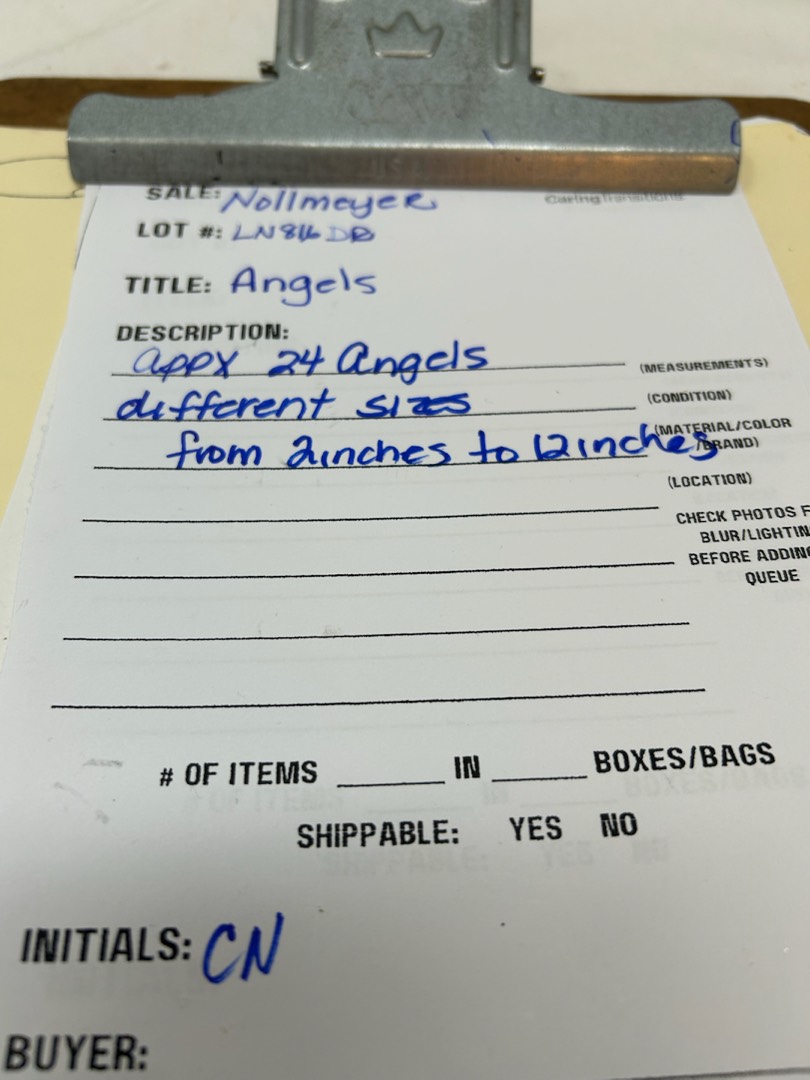 SALE: Nollmeyer
CaringTransitions
LOT #:
TITLE: Angels
DESCRIPTION:
appx 24 Angels
(MEASUREMENTS)
different sizes
(CONDITION)
from 2inches to 12inches
(MATERIAL/COLOR
/BRAND)
(LOCATION)
CHECK PHOTOS F
BLUR/LIGHTIN
BEFORE ADDING
QUEUE
# OF ITEMS ______ IN ______ BOXES/BAGS
SHIPPABLE: YES NO
INITIALS: CN
BUYER: